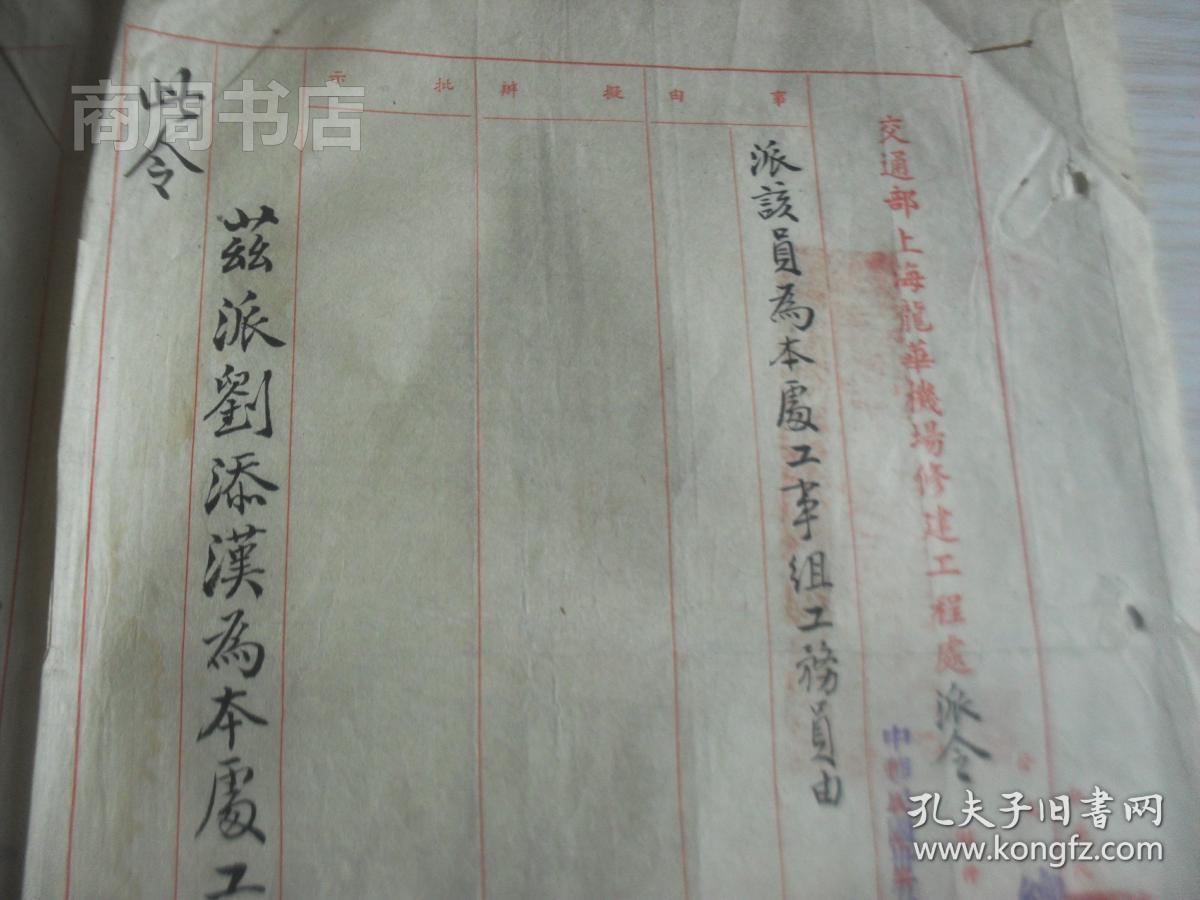 交通部上海龍華機場修建工程處派令
事由
派該員為本處工事組工務員由
擬辦
批示
茲派劉添漢為本處工
此令
商周书店
孔夫子旧书网
www.kongfz.com